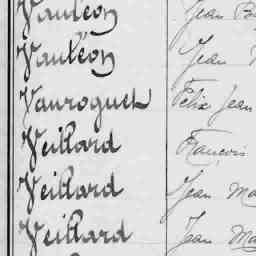 Vauléon Jean
Vauléon Jean
Vauroguet Félix Jean
Veillard François
Veillard Jean Ma
Veillard Jean Ma